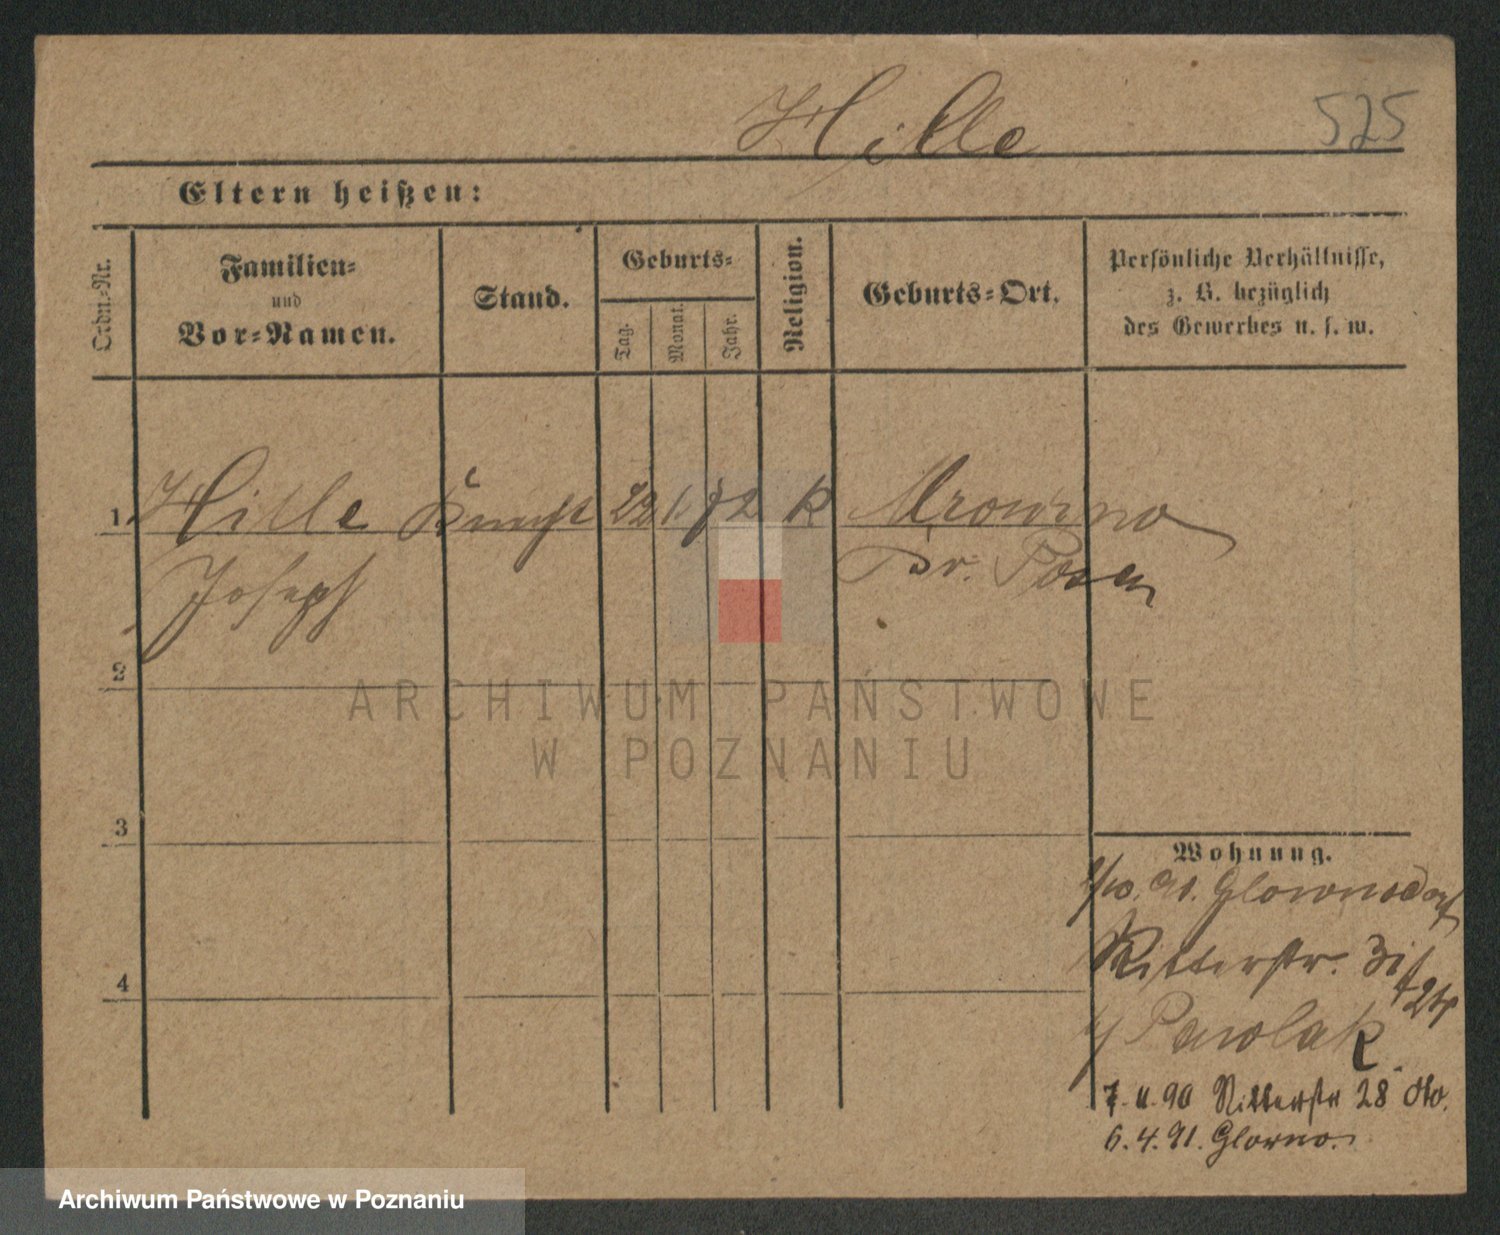 Hille 525
Eltern heißen:
Ordn.-Nr.
Familien-
und
Vor-Namen.
Stand.
Geburts-
Tag.
Monat.
Jahr.
Religion.
Geburts-Ort.
Persönliche Verhältnisse,
z. B. bezüglich
des Gewerbes u. s. w.
1 Hille 22 72 k Mrowino
Joseph Kr. Posen
2
3
Wohnung.
Ritterstr.
4
Pawlak
7. 11. 90 Ritterstr 28
6. 4. 91. Glowno.
ARCHIWUM PAŃSTWOWE
W POZNANIU
Archiwum Państwowe w Poznaniu